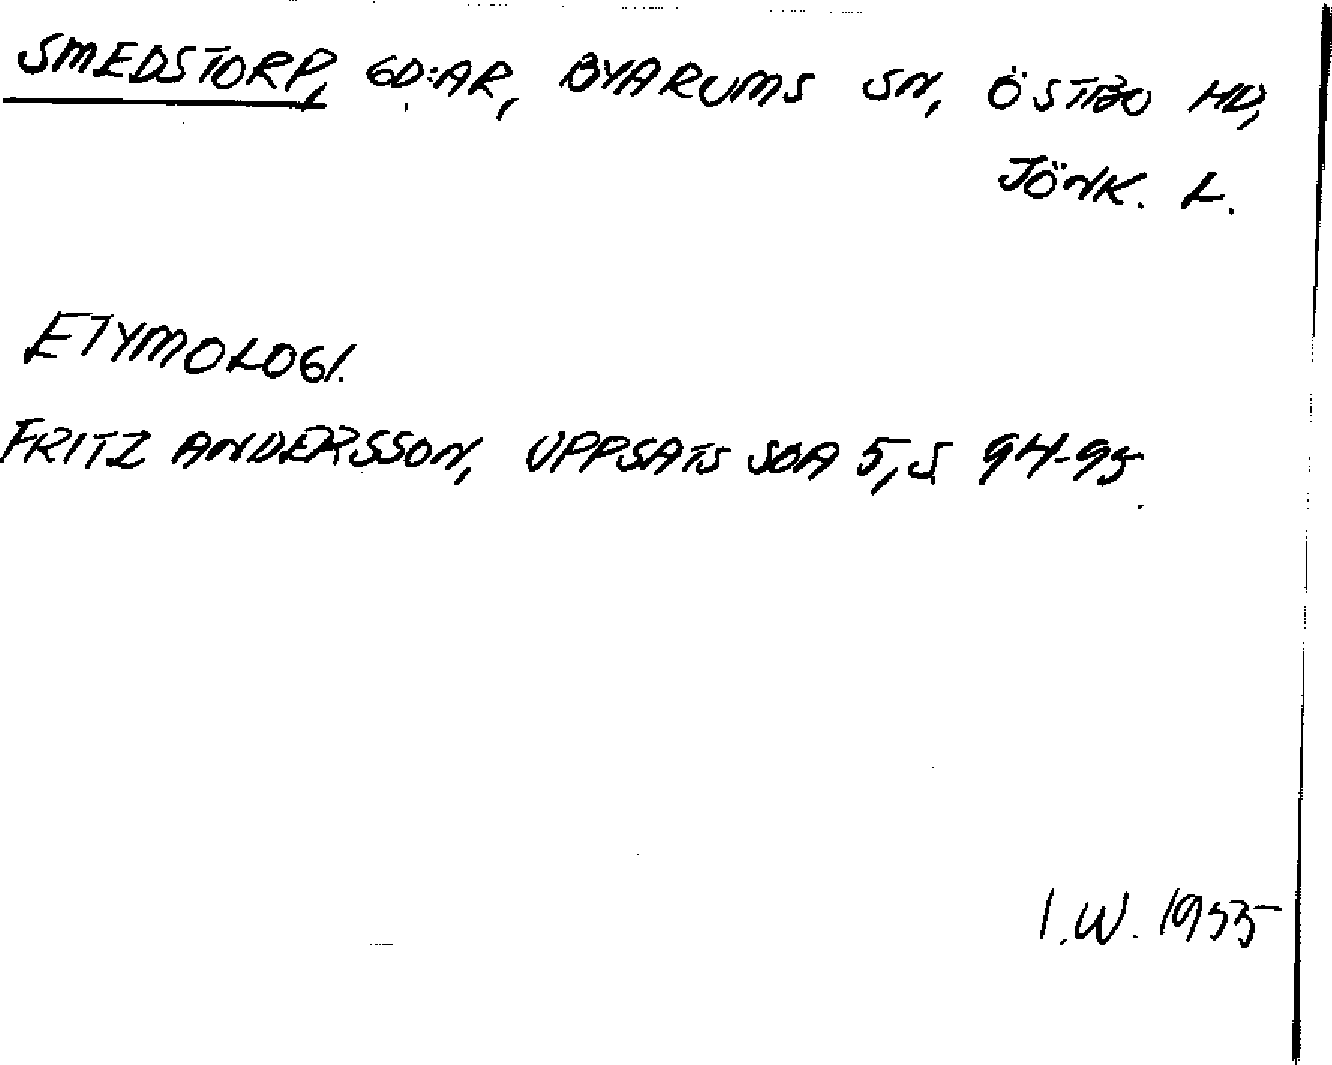 SMEDSTORP, GD:AR, BYARUMS SN, ÖSTBO HD,
JÖNK. L.
ETYMOLOGI.
FRITZ ANDERSSON, UPPSATS SOA 5, S. 94-95.
I.W. 1955